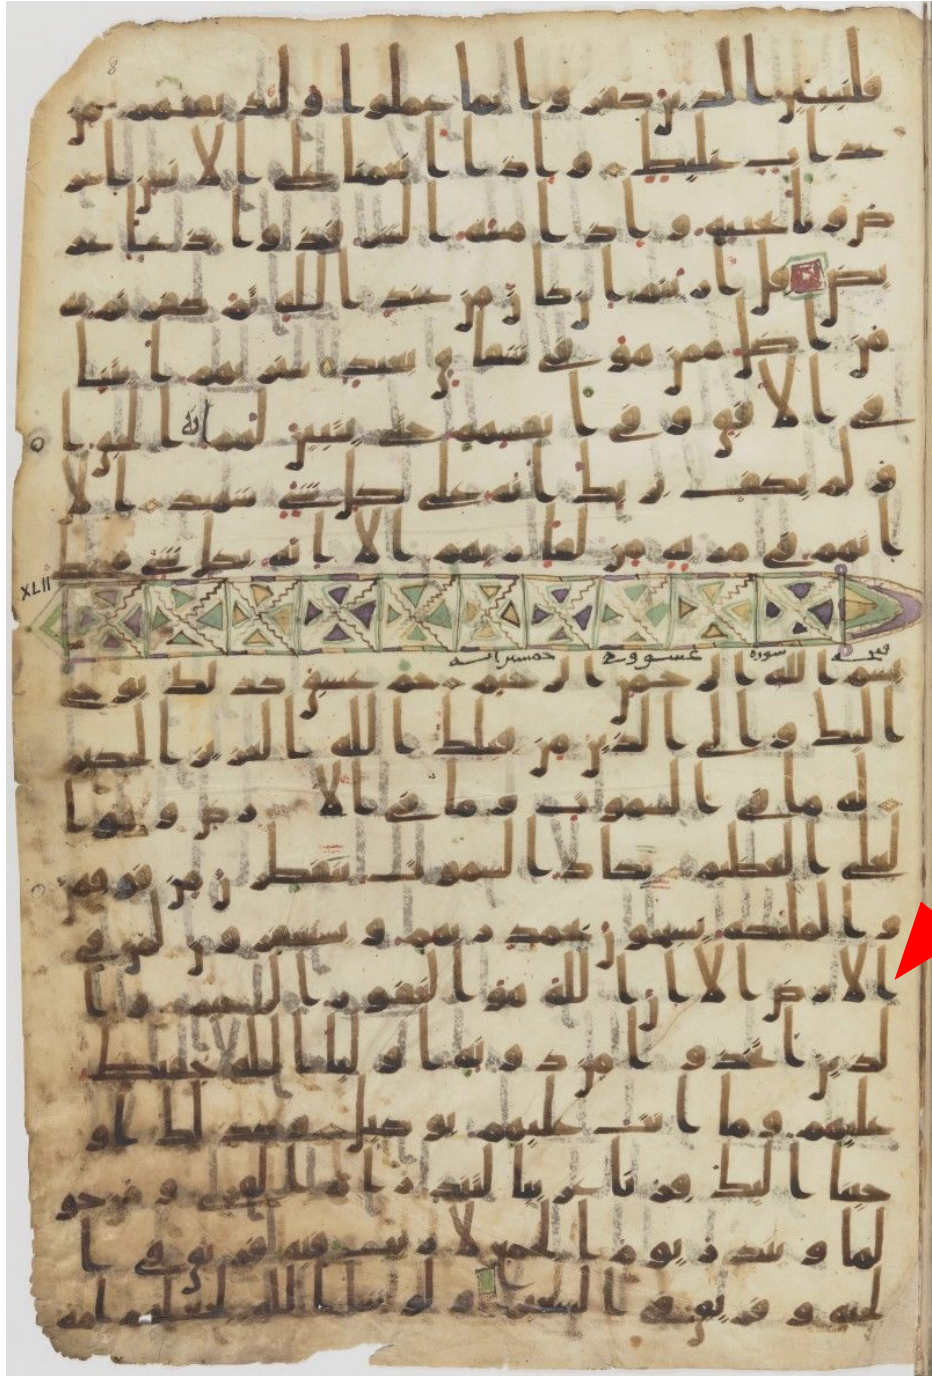 8
فلنبين الذين كفروا بما عملوا ولنذيقنهم من
عذاب غليظ واذا انعمنا على الانسن اعر
ض ونا بجنبه واذا مسه الشر فذو دعا عر
يض قل ارايتم ان كان من عند الله ثم كفرتم به
من اضل ممن هو في شقاق بعيد سنريهم ايتنا
في الافق وفي انفسهم حتى يتبين لهم انه الحق ا
و لم يكف بربك انه على كل شي شهيد الا
انهم في مريه من لقا ربهم الا انه بكل شي محيط
XLII
سوره عسق وهي خمسين ايه
بسم الله الرحمن الرحيم حم عسق كذلك يوحي
اليك والى الذين من قبلك الله العزيز الحكيم
له ما في السموت وما في الارض وهو ا
لعلي العظيم تكاد السموت يتفطرن من فوقهن
و الملئكه يسبحون بحمد ربهم و يستغفرون لمن في
الارض الا ان الله هو الغفور الرحيم وا
لذين اتخذوا من دونه اوليا الله حفيظ
عليهم وما انت عليهم بوكيل وكذلك او
حينا اليك قرنا عربيا لتنذر ام القرى و من حو
لها و تنذر يوم الجمع لا ريب فيه فريق في ا
لجنه و فريق في السعير و لو شا الله لجعلهم امه